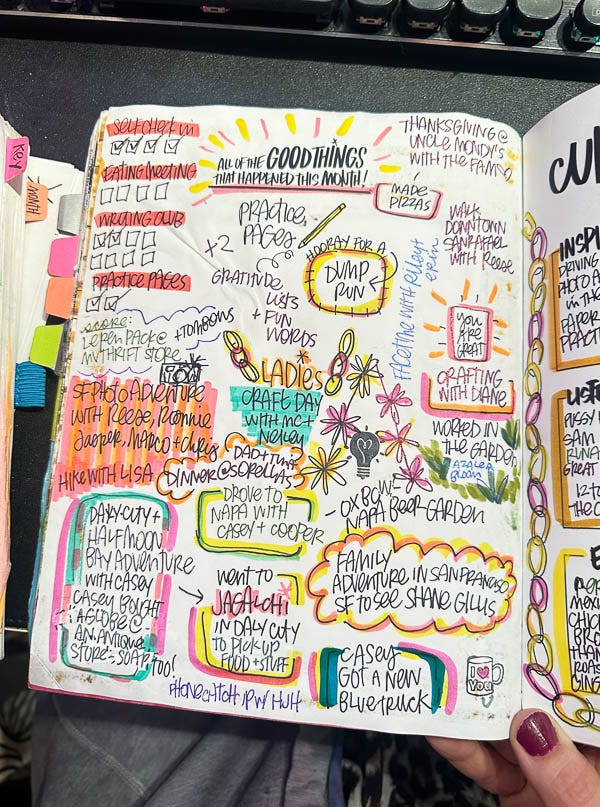 KEY
MONTH
SELF CHECK IN
EATING MEETING
WRITING CLUB
PRACTICE PAGES
ALL OF THE GOOD THINGS
THAT HAPPENED THIS MONTH!
THANKSGIVING @
UNCLE MONDY'S
WITH THE FAM
MADE
PIZZAS
PRACTICE
PAGES
+2
GRATITUDE
LISTS
+ FUN
WORDS
HOORAY FOR A
DUMP
RUN
WALK
DOWNTOWN
SAN RAFAEL
WITH REESE
FACETIME WITH RILEY +
ERIN
SCORE:
PACK @
THRIFT STORE
+ TOMBOWS
WOW
YOU
ARE
GREAT
LADIES
CRAFT DAY
WITH MC +
NELLEY
CRAFTING
WITH DIANE
SF PHOTO ADVENTURE
WITH REESE, RONNIE
JASPER, MARCO + CHRIS
WORKED IN
THE GARDEN
AZALEA
BLOOM
HIKE WITH LISA
DAD + TINA
DINNER @ SORELLAS
DROVE TO
NAPA WITH
CASEY + COOPER
- OXBOW
NAPA BEER-GARDEN
DALY CITY +
HALF MOON
BAY ADVENTURE
WITH CASEY
CASEY BOUGHT
A GLOBE @
AN ANTIQUE
STORE - SOAP TOO!
WENT TO
JAGALCHI
IN DALY CITY
TO PICK UP
FOOD + STUFF
FAMILY
ADVENTURE IN SAN FRANCISCO
SF TO SEE SHANE GILLIS
CASEY
GOT A NEW
BLUE TRUCK
I ♥
YOU
CU
INSPI
DRIVING
PHOTO A
IN THE
PAPER
PRACTI
LISTE
PUSSY
SAM
RUNA
GREAT
12-TO
THE
E
MEXI
CHIC
BRO
THAN
ROAS